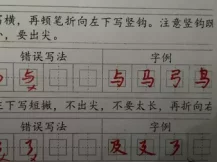 写横，再顿笔折向左下写竖钩。注意竖钩
，要出尖。
错误写法 字例
与 与 马 弓
下写短撇，不出尖，不要太长，再折向右
错误写法 字例
及